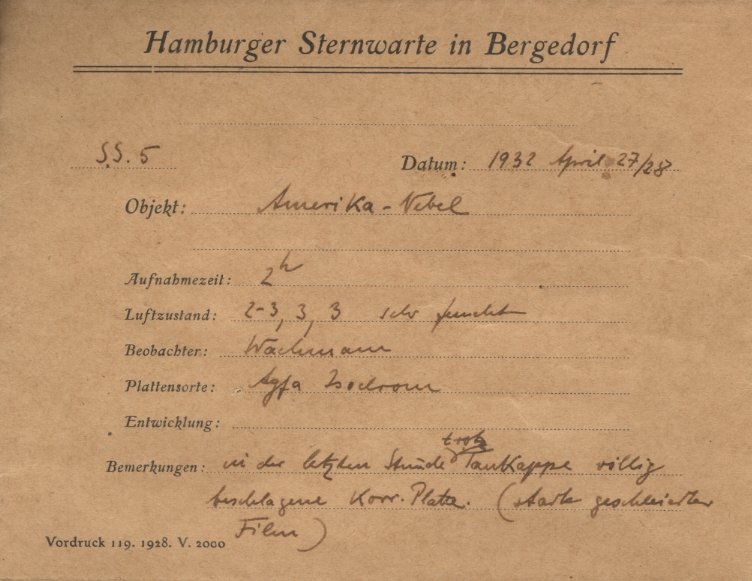 Hamburger Sternwarte in Bergedorf
S.S. 5 Datum: 1932 April 27/28
Objekt: Amerika-Nebel
Aufnahmezeit: 2h
Luftzustand: 2-3, 3, 3 sehr feucht
Beobachter: Wachmann
Plattensorte: Agfa Isochrom
Entwicklung:
Bemerkungen: in der letzten Stunde trotz Taukappe völlig
beschlagene Korr. Platte. (stark geschleierter
Film)
Vordruck 119. 1928. V. 2000